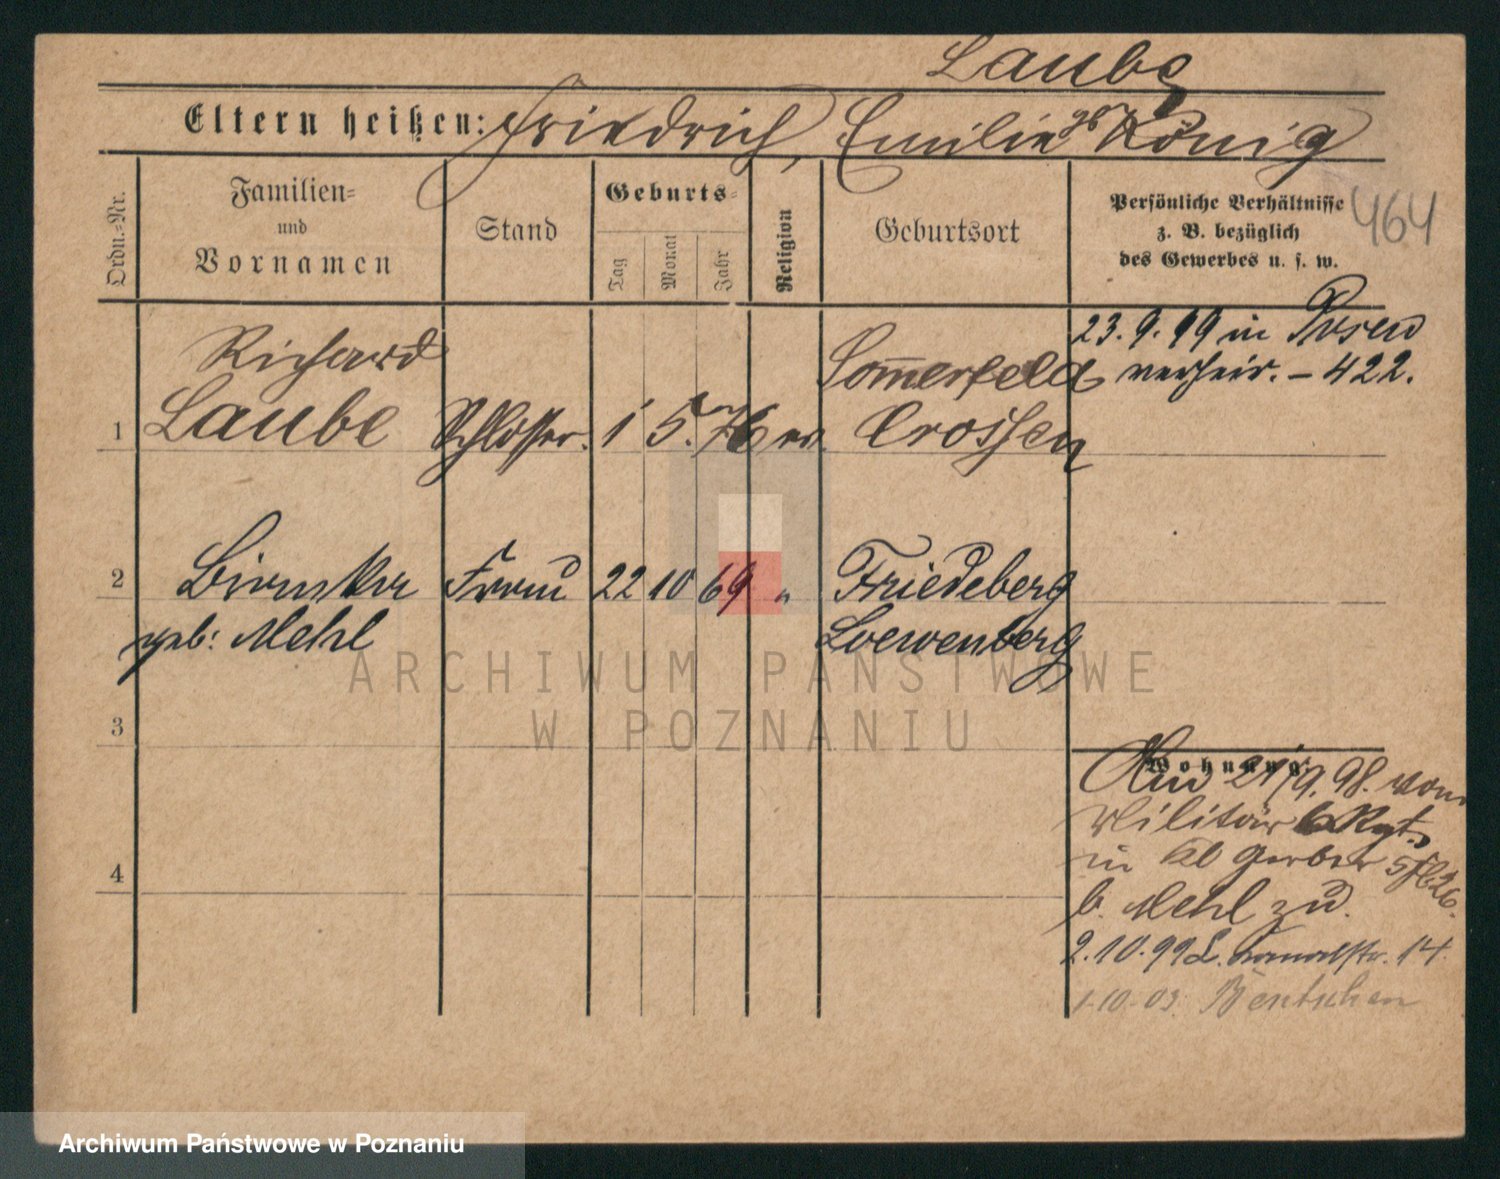 Laube
Eltern heißen: Friedrich, Emilie gb König
464
Ordn.-Nr.
Familien-
und
Vornamen
Stand
Geburts-
Tag
Monat
Jahr
Religion
Geburtsort
Persönliche Verhältnisse
z. B. bezüglich
des Gewerbes u. s. w.
23. 9. 99 in Posen
verheir. - 422.
Richard Sommerfeld
1 Laube Schlosser. 1 5. 76 ev. Crossen
2 Frau 22 10 69 " Friedeberg
geb: Mehl Loewenberg
3
4
Wohnung:
21/9. 98. vom
Militär 6 Rgt.
in Kl Gerber
b. Mehl zu.
2. 10. 99 14
1-10-03. Bentschen
ARCHIWUM PAŃSTWOWE
W POZNANIU
Archiwum Państwowe w Poznaniu